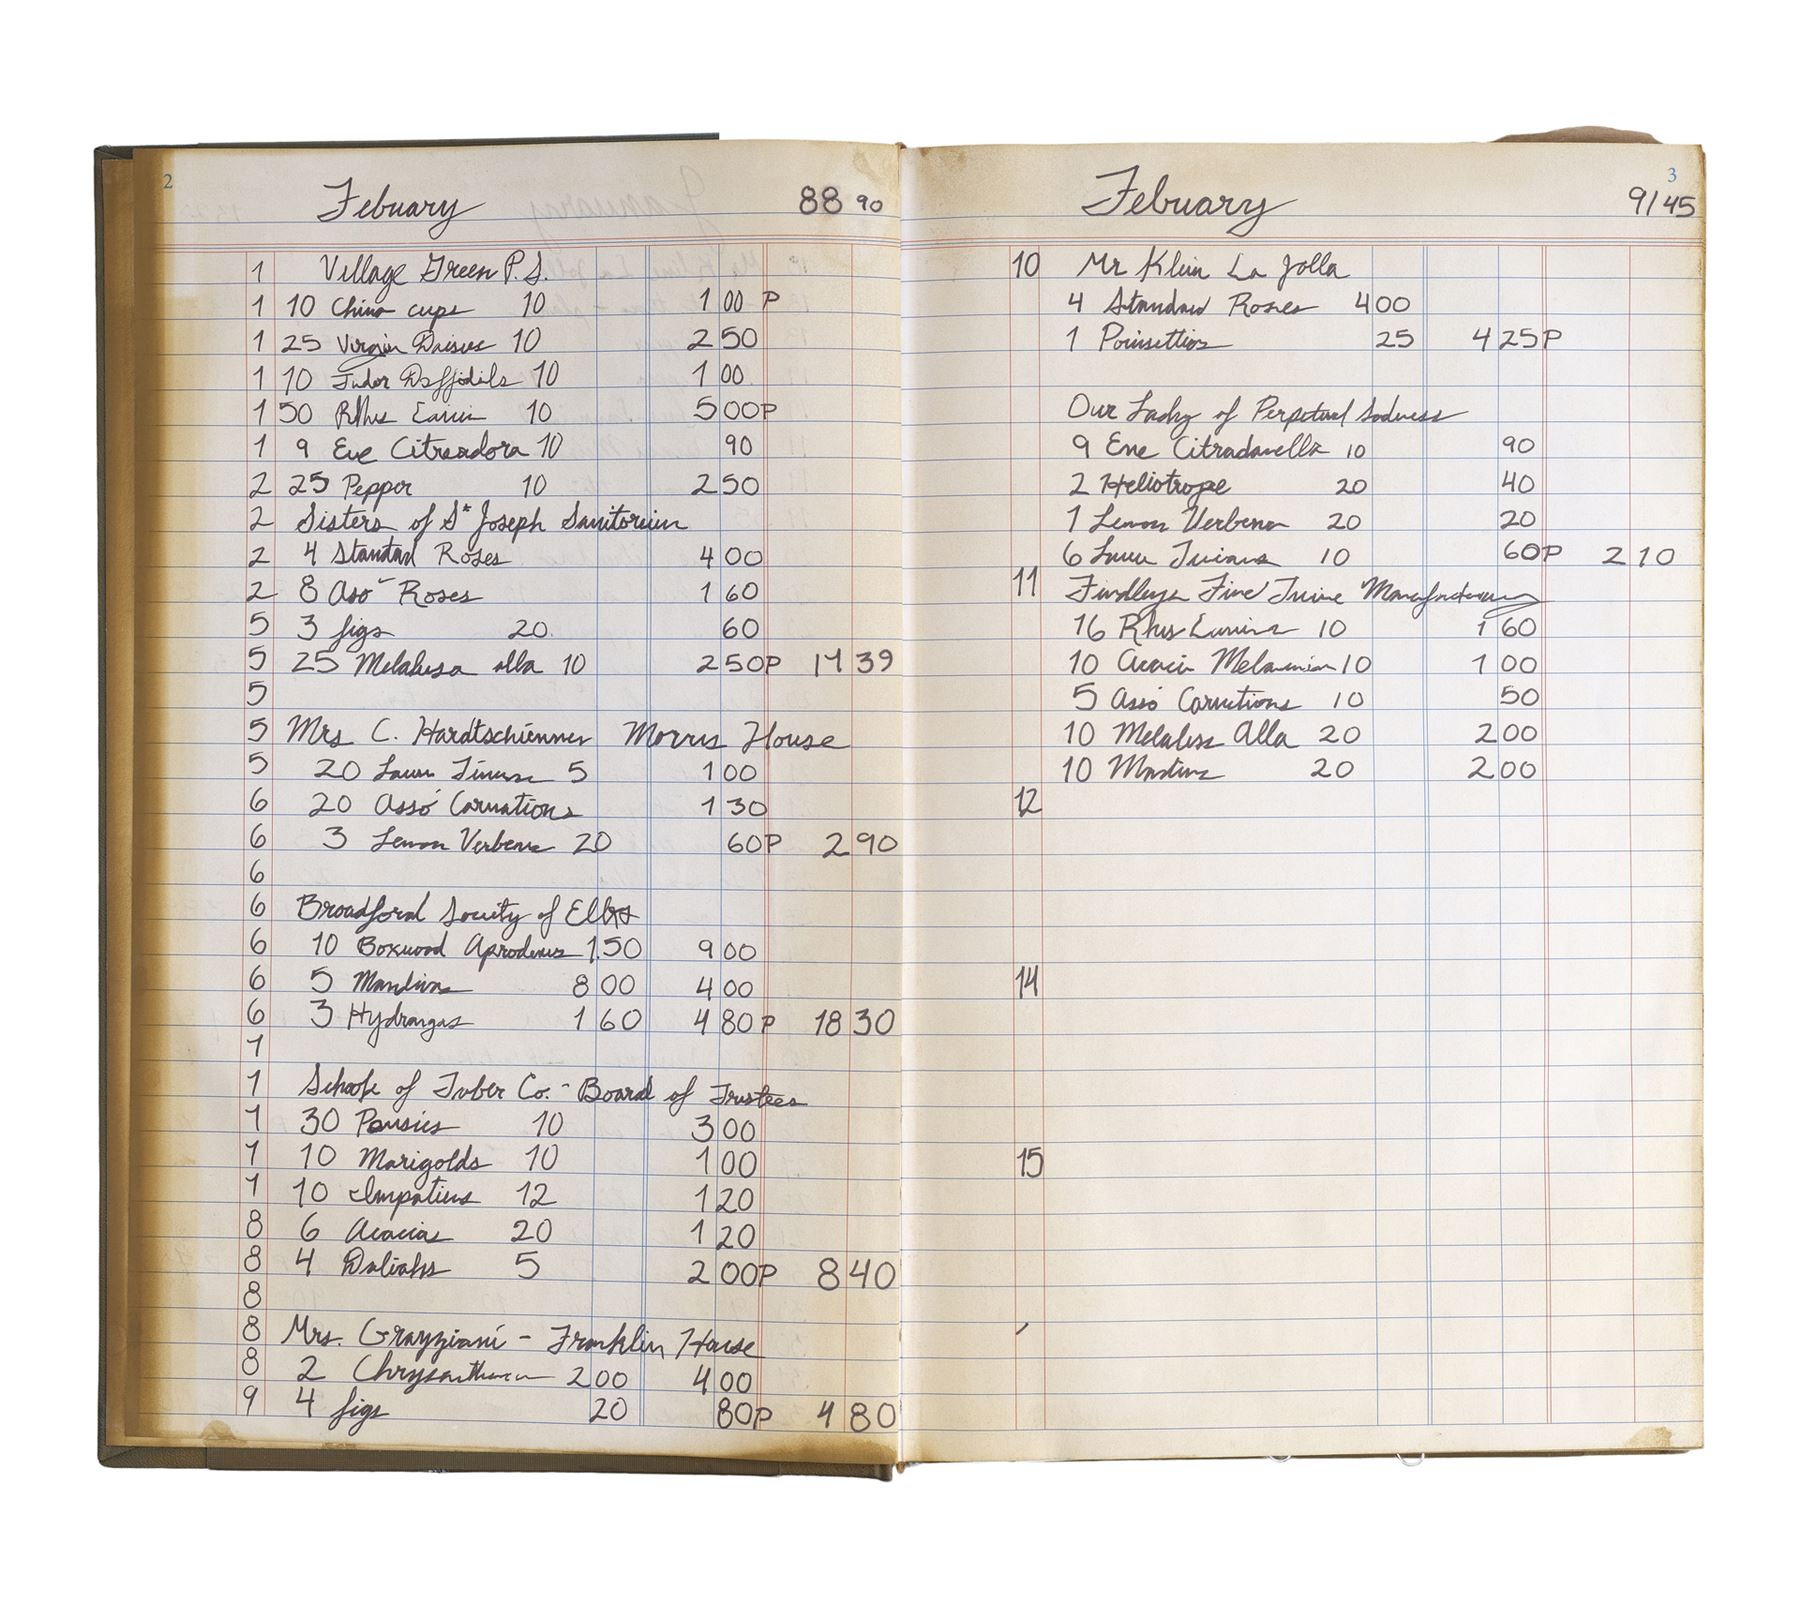 2
Febuary 88 90
1 Village Green P. S.
1 10 China cups 10 1 00 P
1 25 Virgin Daisies 10 2 50
1 10 Tudor Daffodils 10 1 00
1 50 Rhus 10 5 00 P
1 9 Eve Citreadora 10 90
2 25 Pepper 10 2 50
2 Sisters of St Joseph Sanitorium
2 4 Standard Roses 4 00
2 8 Roses 1 60
5 3 figs 20 60
5 25 Melaleusa alla 10 2 50 P 17 39
5
5 Mrs C. Hardtschienner Morris House
5 20 5 1 00
6 20 Asso Carnations 1 30
6 3 Lemon Verbena 20 60 P 2 90
6
6 Broadford Society of Elks
6 10 Boxwood 1.50 9 00
6 5 8 00 4 00
6 3 Hydrangas 1 60 4 80 P 18 30
7
7 Schools of Tuber Co. - Board of Trustees
7 30 Pansies 10 3 00
7 10 Marigolds 10 1 00
7 10 Impatiens 12 1 20
8 6 Acacias 20 1 20
8 4 Daliahs 5 2 00 P 8 40
8
8 Mrs. Grayziani - Franklin House
8 2 2 00 4 00
9 4 figs 20 80 P 4 80
3
Febuary 91 45
10 Mr Klein La Jolla
4 Standard Roses 4 00
1 Poinsettias 25 4 25 P
Our Lady of Perpetual Sadness
9 Eve 10 90
2 Heliotrope 20 40
1 Lemon Verbena 20 20
6 10 60 P 2 10
11 Findleys Fine Twine Manufacturing
16 Rhus 10 1 60
10 Acacia 10 1 00
5 Asso Carnations 10 50
10 Alla 20 2 00
10 20 2 00
12
14
15